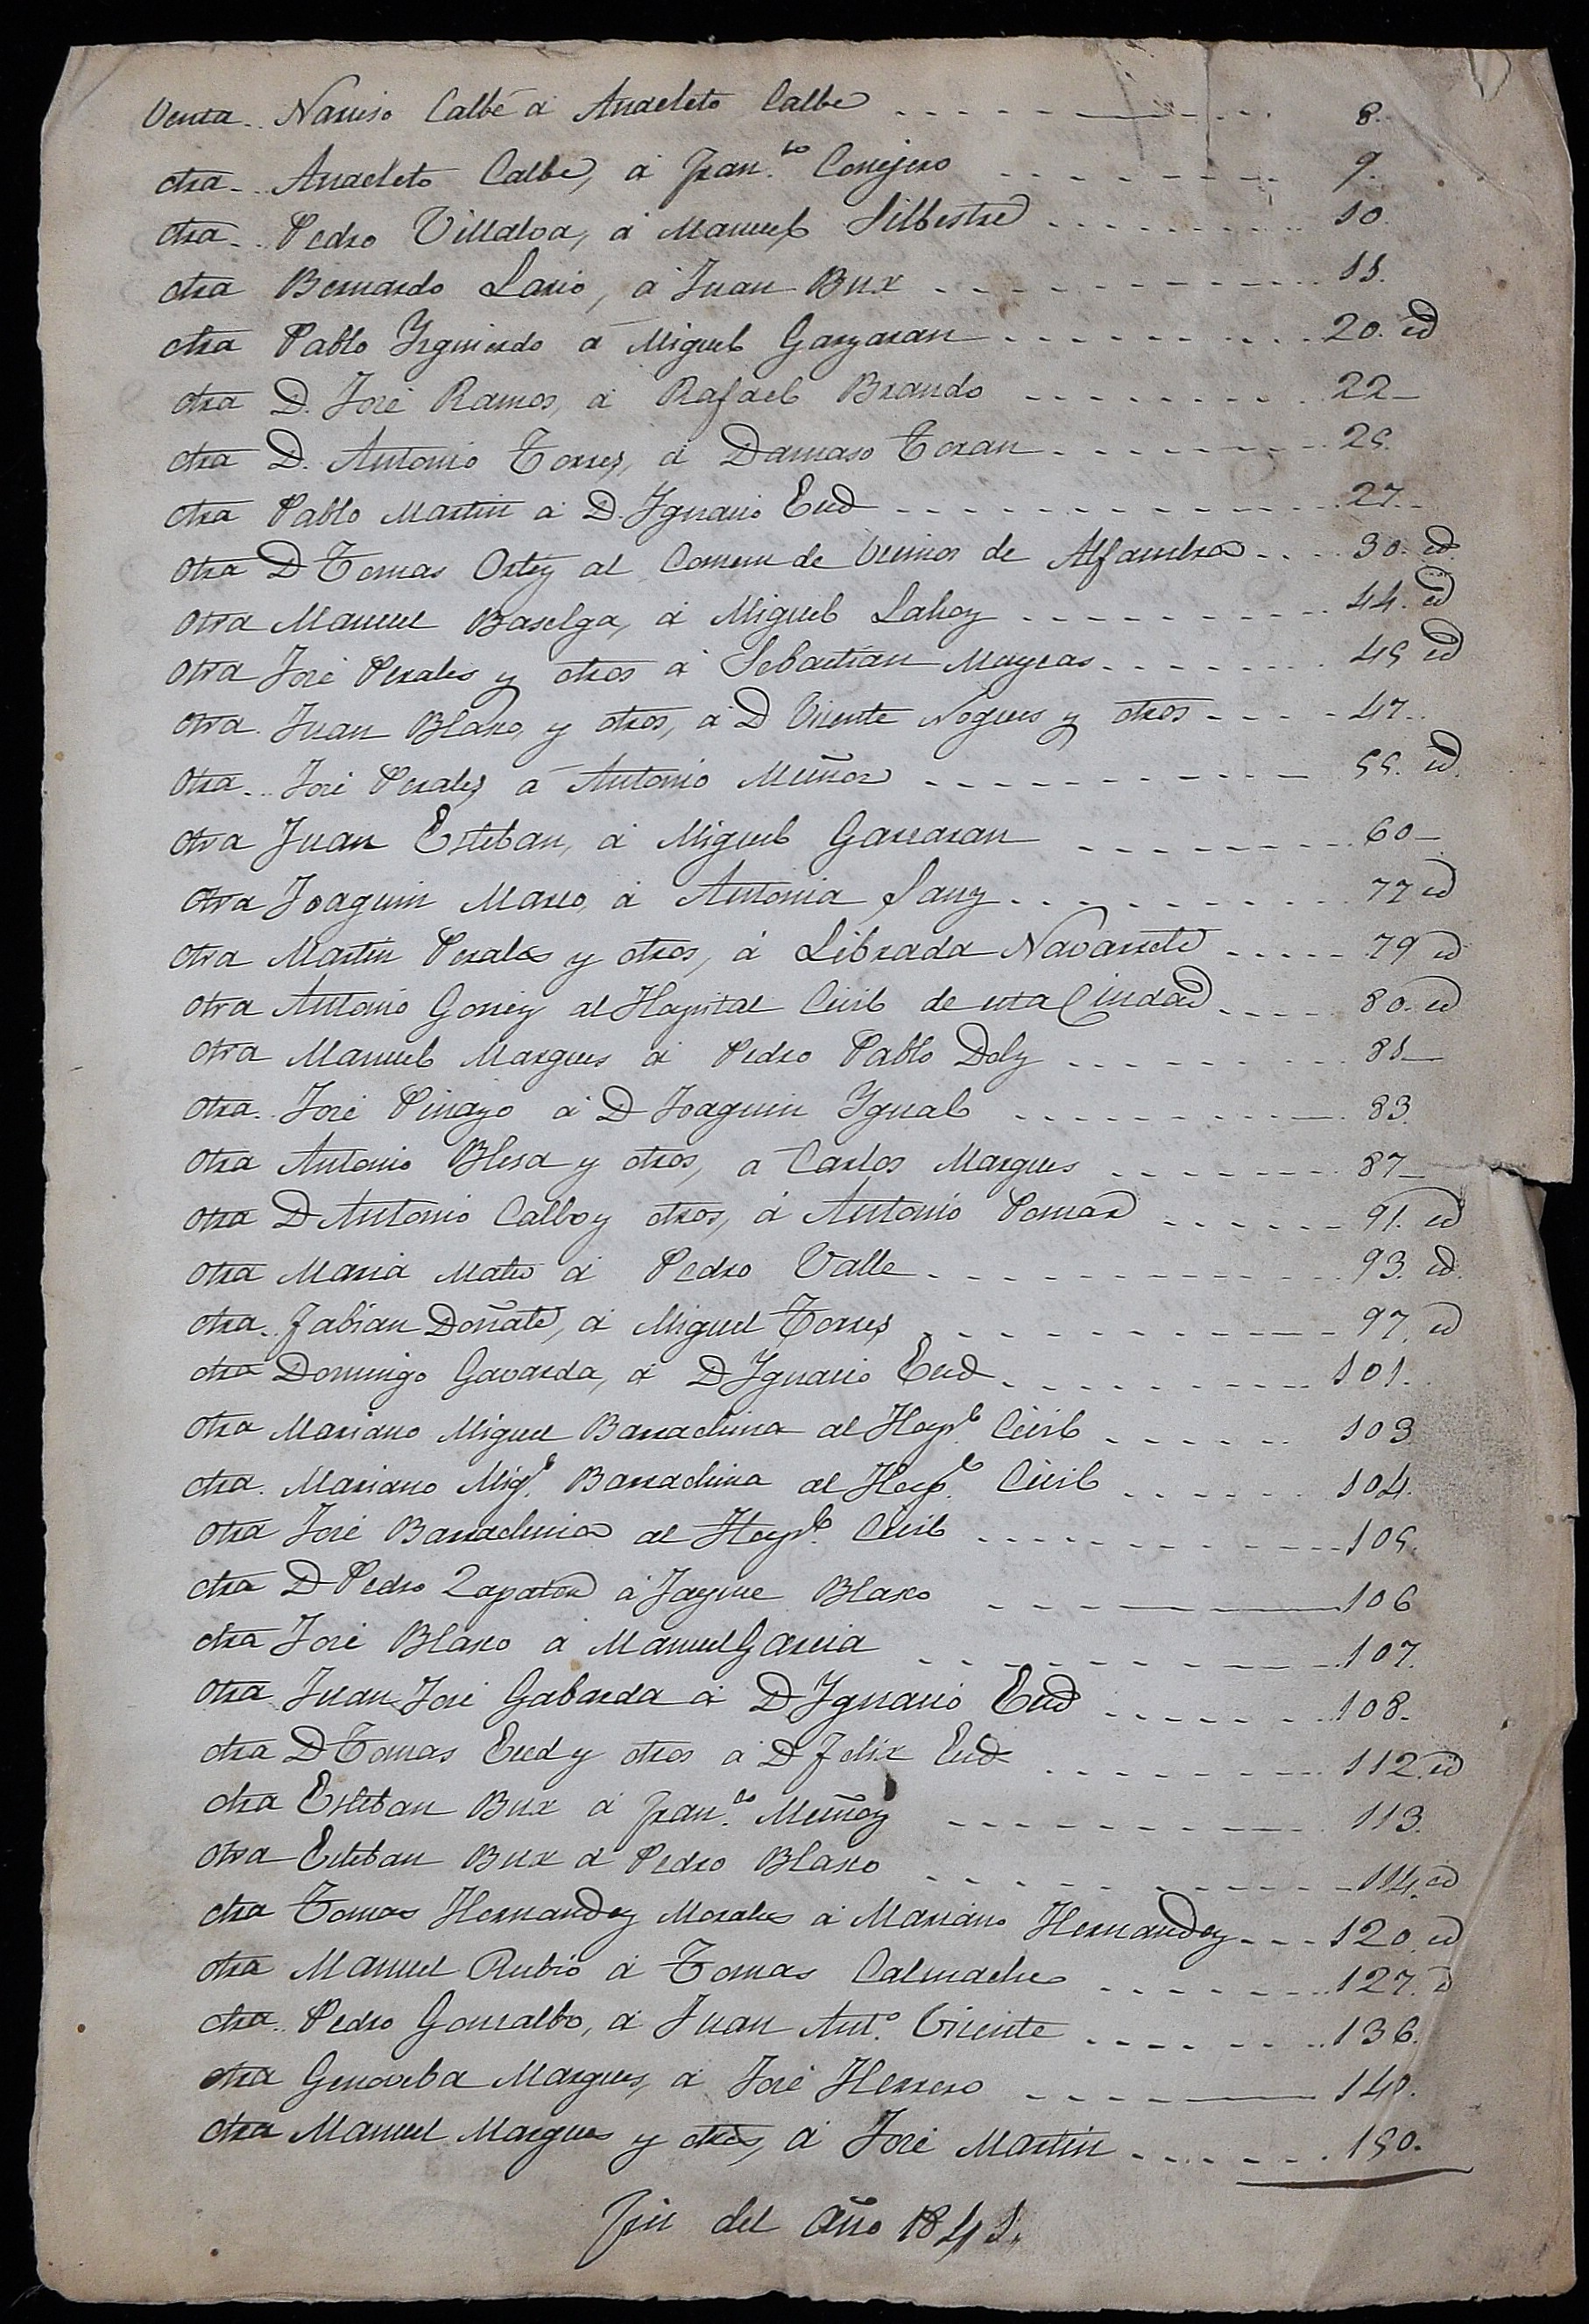 Venta.. Narciso Calbé á Anacleto Calbe 8.
otra.. Anacleto Calbe, á Fran.co Conejero 9.
otra.. Pedro Villalva, á Manuel Silbestre 10.
otra Bernardo Lario, á Juan Bux 11.
otra Pablo Yzquierdo á Miguel Garzaran 20. id
otra D. José Ramos, á Rafael Brando 22
otra D. Antonio Torres, á Damaso Toran 25.
otra Pablo Martin á D. Ygnacio Eced 27.
otra D Tomas Ortiz al Comun de Vecinos de Alfambra 30. id.
otra Manuel Baselga, á Miguel Lahoz 44. id
otra José Perales y otros á Sebastian Maycas 45 id
otra Juan Blasco, y otros, á D Vicente Nogues y otros 47.
otra.. José Perales á Antonio Muñoz 55. id.
otra Juan Esteban, á Miguel Garzaran 60
otra Joaquin Marco, á Antonia Sanz 77 id
otra Martin Perales y otros, á Librada Navarrete 79 id
otra Antonio Gomez al Hospital Civil de esta Ciudad 80. id
otra Manuel Marques á Pedro Pablo Dolz 81
otra.. José Pinazo á D Joaquin Ygual 83.
otra Antonio Blesa y otros, á Carlos Marques 87
otra D Antonio Calbo y otros, á Antonio Pomar 91. id
otra Maria Mateo á Pedro Valle 93. id.
otra.. Fabian Doñate, á Miguel Torres 97. id
otra Domingo Gavarda, á D Ygnacio Eced 101.
otra Mariano Miguel Barrachina al Hosp.l Civil 103
otra. Mariano Mig.l Barrachina al Hosp.l Civil 104.
otra José Barrachina al Hosp.l Civil 105.
otra D Pedro Zapater á Jayme Blasco 106
otra José Blasco á Manuel Garcia 107.
otra Juan José Gabarda á D Ygnacio Eced 108.
otra D Tomas Eced y otros á D Felix Eced 112. id
otra Esteban Bux á Fran.co Muñoz 113.
otra Esteban Bux á Pedro Blasco 114. id
otra Tomas Hernandez Morales á Mariano Hernandez 120. id
otra Manuel Rubio á Tomas Calmache 127. id
otra.. Pedro Gonzalbo, á Juan Ant.o Vicente 136.
otra Genoveba Marques, á José Herrero 140.
otra Manuel Marques y otros, á José Martin 150.
Fin del Año 1841.